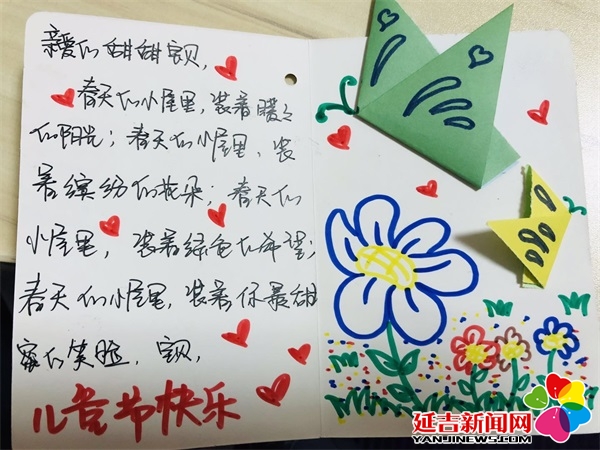 亲爱的甜甜宝贝，
春天的小屋里，装着暖暖
的阳光；春天的小屋里、装
着缤纷的花朵；春天的
小屋里，装着绿色的希望；
春天的小屋里，装着你最甜
蜜的笑脸，宝贝，
儿童节快乐
延吉新闻网
YANJINEWS.COM